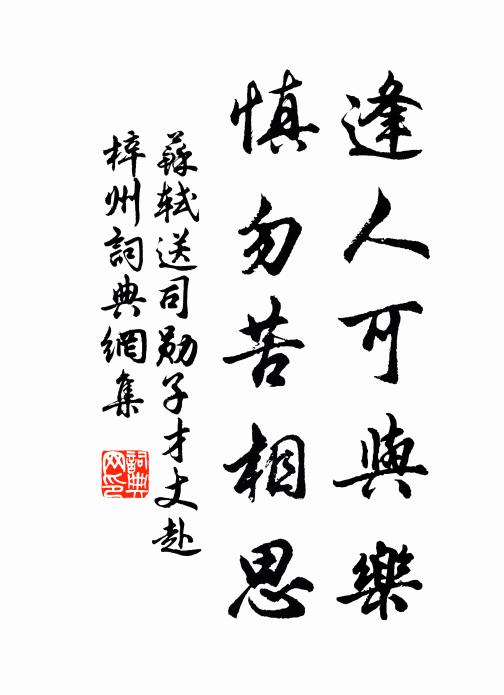 逢人可與樂
慎勿苦相思
蘇軾送司勛子才丈赴
梓州詞典網集
詞典网印